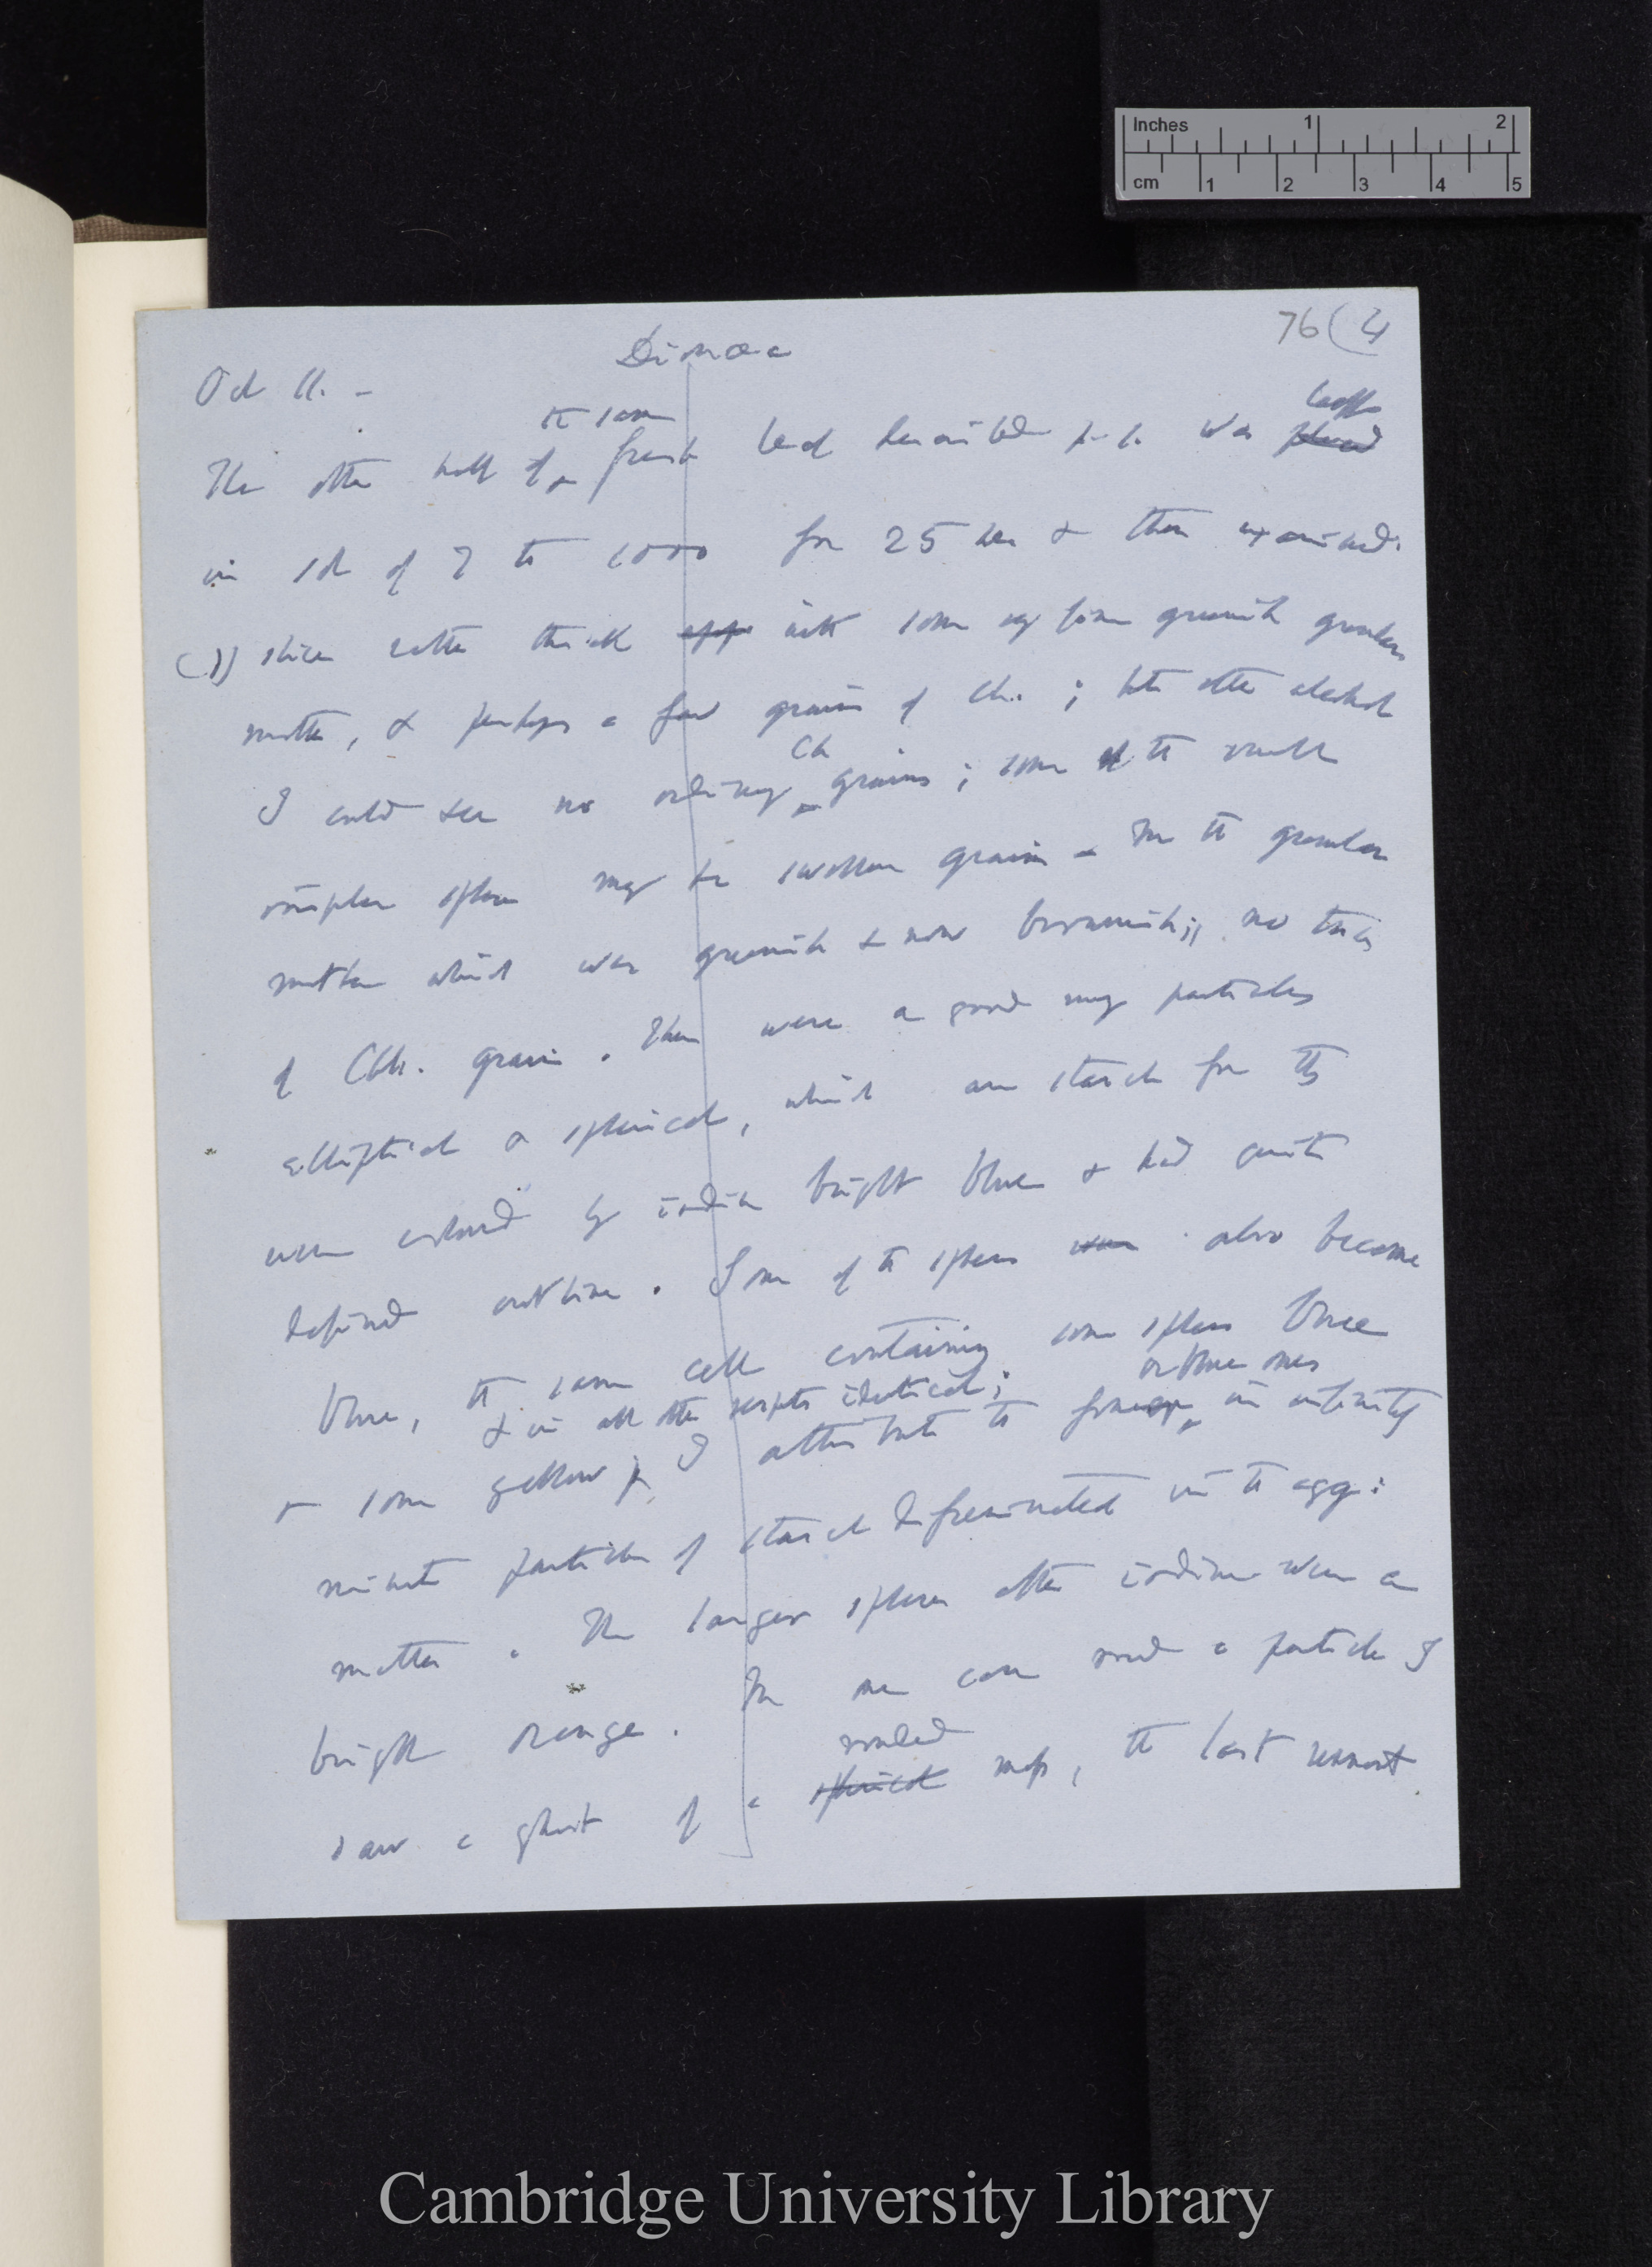 Inches 1 2
cm 1 2 3 4 5
76 (4
Dionæa
Oct 11. –
the same
The other half of fresh leaf described p. 1. was placed
in sol of 7 to 1000 for 25 hrs & then examined.
(1) slice rather thick app with some agg fine greenish granular
matter, & perhaps a few grains of Ch. ; but after alcohol
Ch
I could see no ordinary grains ; some of the small
spheres may be swollen grains – In the granular
matter which was greenish & now brownish, no trace
of Chl. grain . There were a good many particles
elliptical or spherical, which are starch for they
were coloured by iodine bright blue & had quite
defined outline . Some of the spheres were also become
blue, the same cell containing some spheres blue
& in all other respects identical; or blue ones
& some yellow ; I attribute to an infinity
minute particles of starch disseminated in the agg:
matter . The larger spheres after iodine were a
bright orange . In one case round a particle I
rounded
saw a ghost of a spherical mass, the last remnant
Cambridge University Library